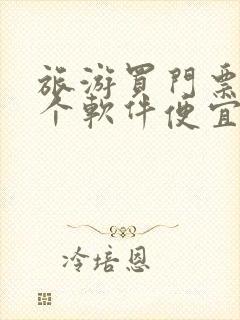 旅游買門票
个軟件便宜
冷培恩